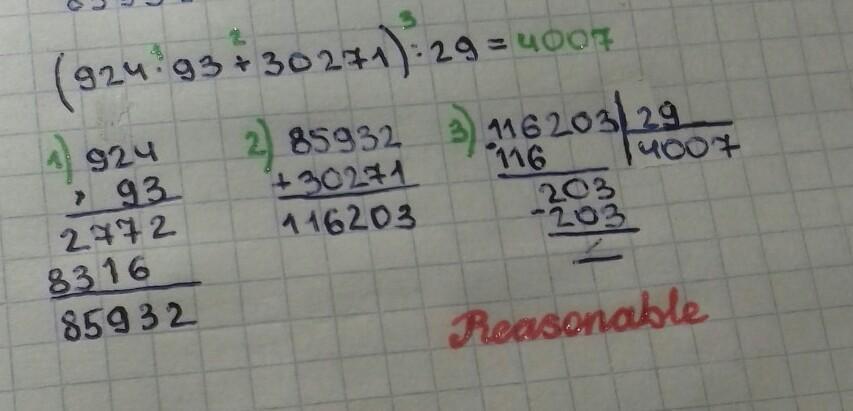 (924 · 93 + 30271) : 29 = 4007
1 2 3
1) 924
× 93
2772
8316
85932
2) 85932
+30271
116203
3) 116203 | 29
-116 | 4007
203
-203
Reasonable